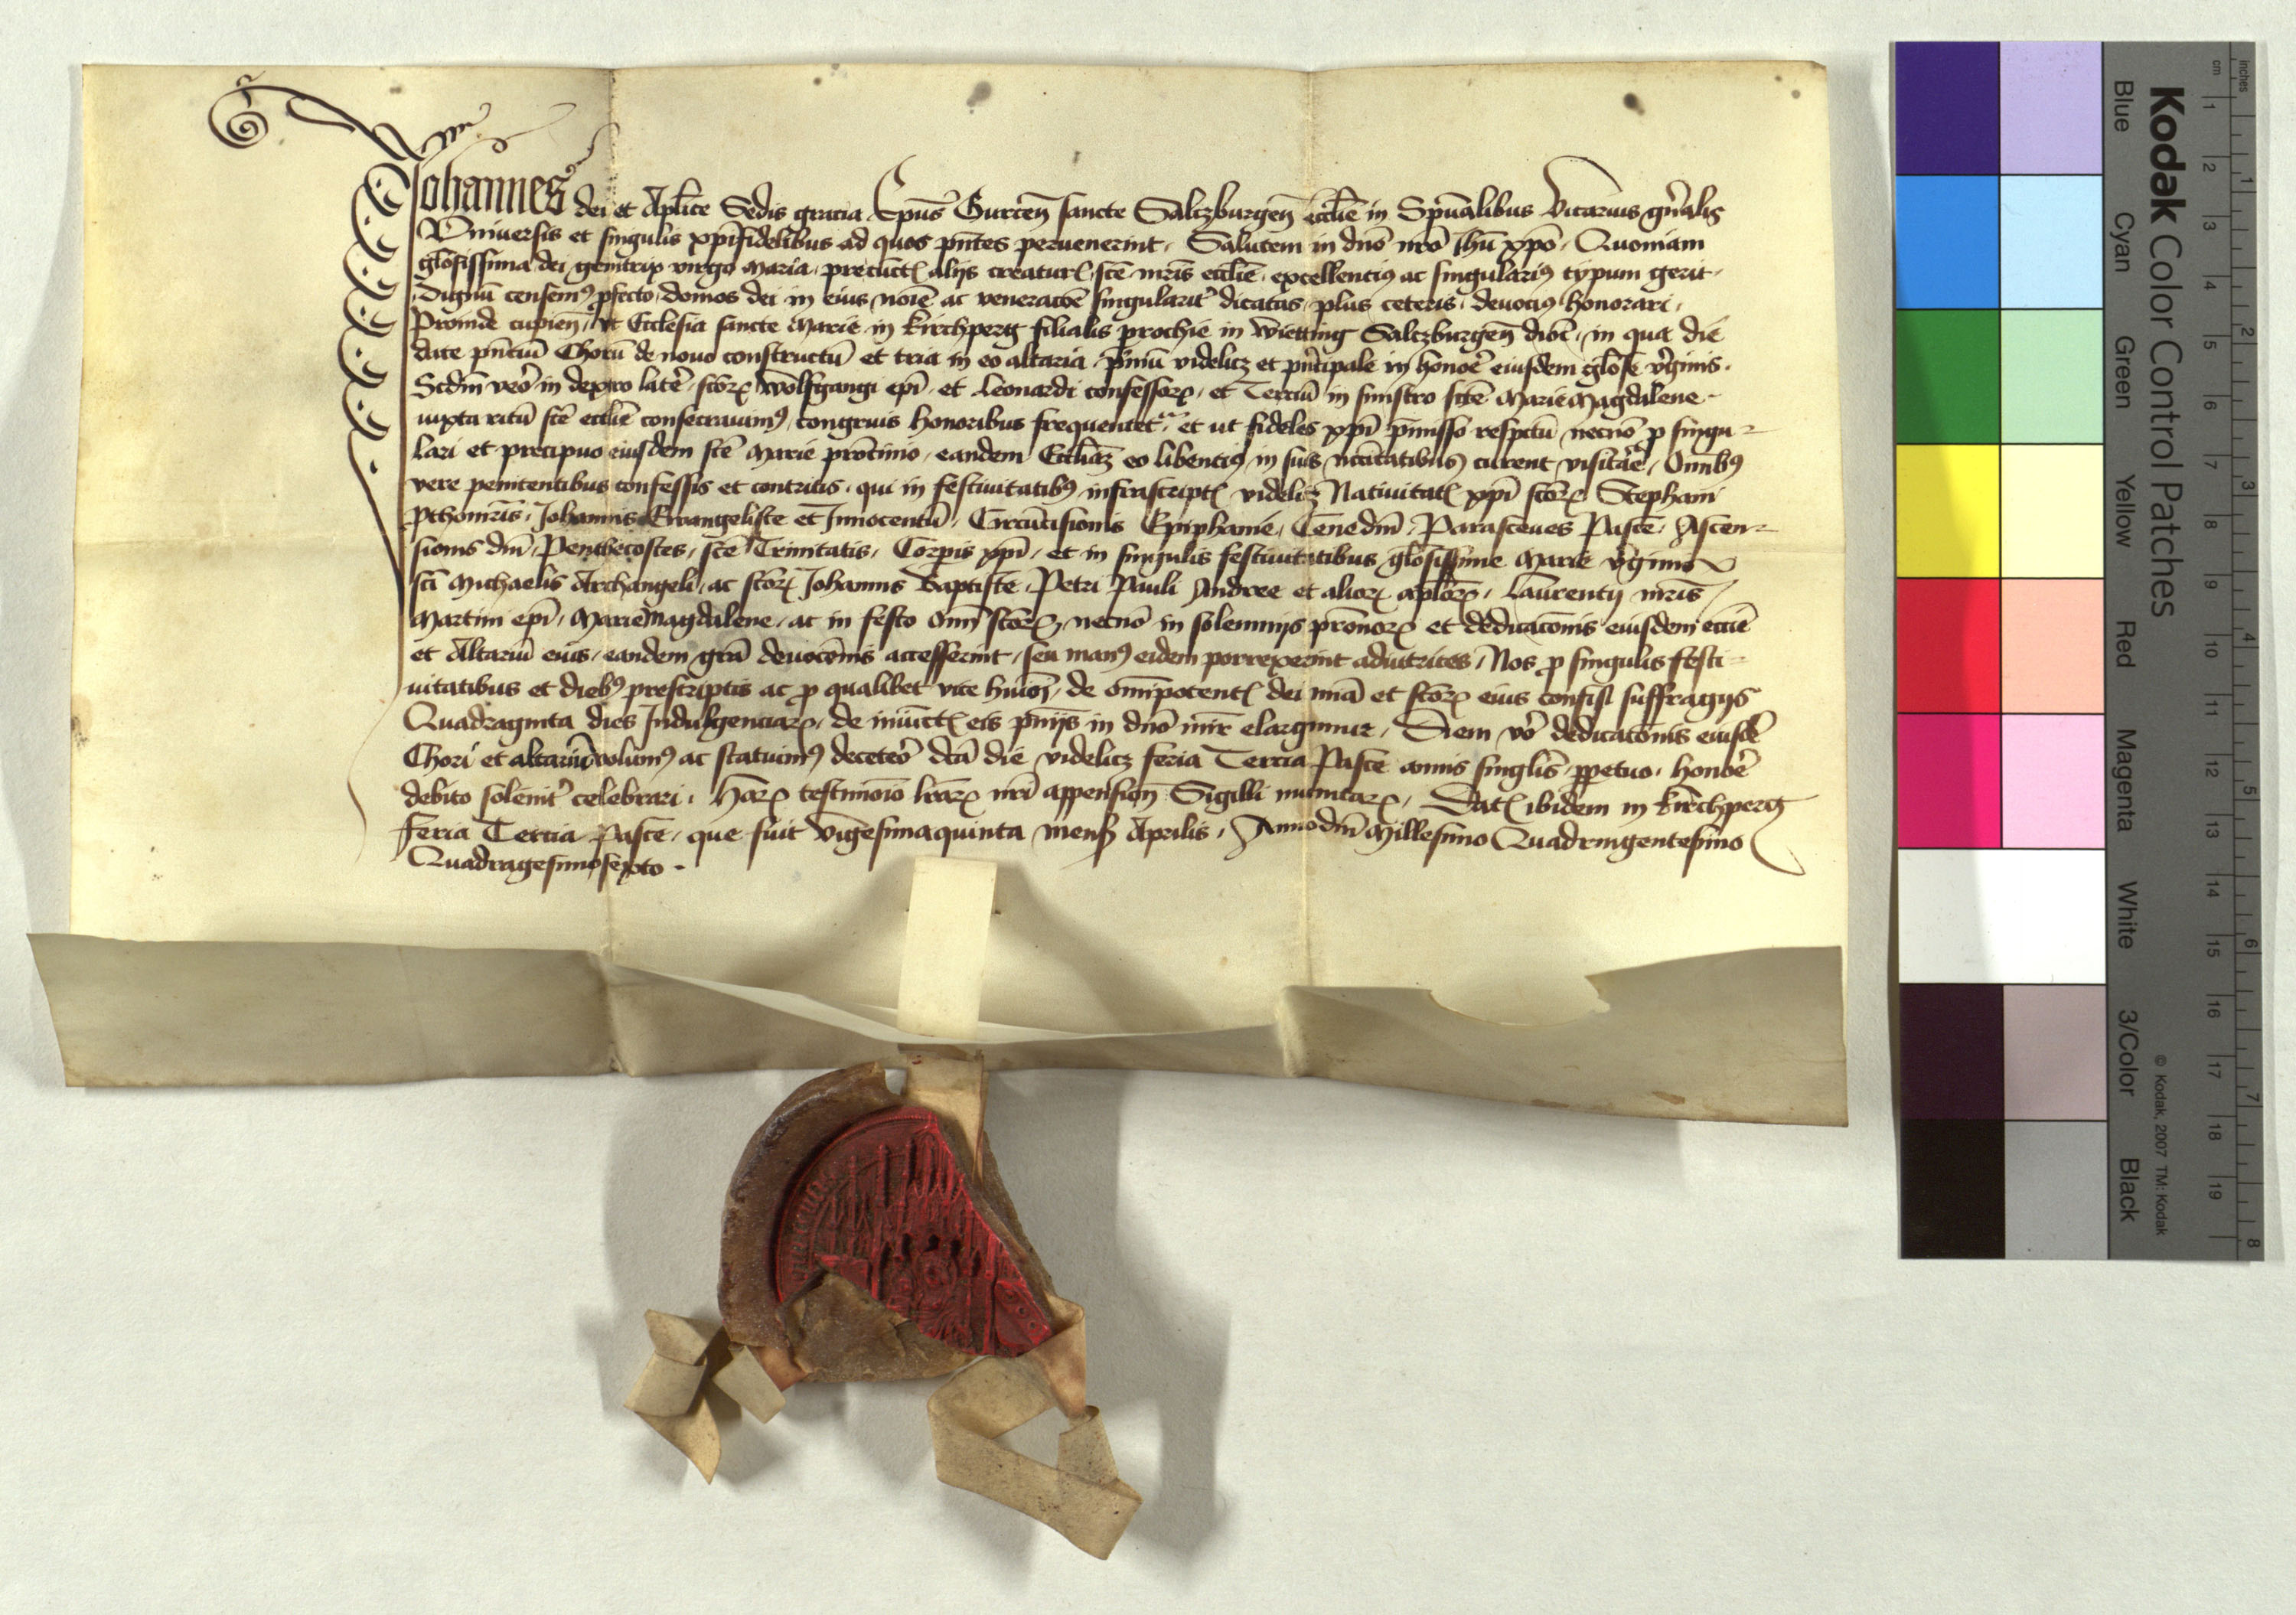 Johannes dei et Aplice Sedis gracia Epus Gurcen̄ sancte Salczburgen̄ ecclie in Spūalibus Vicarius gn̄alis
Vniuersis et singulis xp̄ifidelibus ad quos pn̄tes peruenerint. Salutem in dn̄o nr̄o Ihū xp̄o. Quoniam
gl̄osissima dei genitrix virgo maria, precunctꝭ alijs creaturꝭ, scē mr̄is ecclie, excellentiꝰ ac singulariꝰ typum gerit.
Dignū censemꝰ ꝓfecto, domos dei in eius noīe ac veneracōe singularit᷑ dicatas, plus ceteris, deuociꝰ honorari,
Proinde cupien̄, vt Ecclesia sancte Marie in kirchperg filialis prochie in wietting Salczburgen̄ dioc̄, in qua die
date pn̄tiū Chorū de nouo constructū et tria in eo altaria, pimū videlicꝫ et pn̄cipale in honor̄e eiusdem gl̄ose vir̄ginis.
Scdm̄ vero in dextro later̄e, sctorꝝ wolfgangi epī, et leonardi confessorꝝ, et Terciū in sinistro scte Marie Magdalene
iuxta ritū scē ecclie consecrauimꝰ, congruis honoribus frequentet᷑, et ut fideles xp̄i p̄misso respectū necnō ꝑ singu-
lari et precipuo eiusdem scē Marie prōcinio, eandem Eccliaꝫ eo libenciꝰ in suis nccitatibus curent visitar̄e, Omibꝰ
vere penitentibus confessis et contritis, qui in festiuitatibꝰ infrascriptꝭ videlicꝫ Natiuitatꝭ xp̄i sctōrꝝ Stephani
ꝓthomr̄is, Johannis Ewangeliste et Innocentū, Circūcisionis Epiphanie, Cene dnī, Parasceues Pasce, Ascen-
sionis dnī, Penthecostes, scē Trinitatis, Corpis xp̄i, et in singulis festiuitatibus gl̄osissime Marie vir̄ginis
sci Michaelis Archangeli, ac sctorꝝ Johannis Baptiste, Petri Pauli Andree et aliorꝝ aplorꝝ, laurentij mr̄is
Martini epī, Marie Magdalene, ac in festo om̄ sctōrꝝ, necnō in solemnijs prōnorꝝ et dedicacōnis eiusdem eccīe
et Altariū eius, eandem grā deuocōnis accesserint, seu manꝰ eidem porrexerint adiutrices, Nos ꝑ singulis festi-
uitatibus et diebꝰ prescriptis ac ꝑ qualibet vice hmōi, de om̄ipotentꝭ dei miā et sctōrꝝ eius confisi suffragijs
Quadraginta dies Indulgenciarꝝ, de iniūctꝭ eis pn̄ijs in dn̄o mīr elargimur, Diem vero dedicacōnis eiusdē
Chori et altariū volumꝰ ac statuimꝰ decetero dcā die videlicꝫ feria Tercia Pasce annis singlīs ꝑpetuo, honor̄e
debito solēnit᷑ celebrari, Harꝝ testimoīo lrārꝝ nr̄i appension̄ Sigilli munitarꝝ, Datꝭ ibidem in kirchperg
feria Tercia Pasce, que fuit vigesimaquinta mensꝭ Aprilis, Anno dnī Millesimo Quadringentesimo
Quadragesimosexto.
Kodak Color Control Patches
Blue
Cyan
Green
Yellow
Red
Magenta
White
3/Color
Black
© Kodak, 2007 TM: Kodak
cm
1
2
3
4
5
6
7
8
9
10
11
12
13
14
15
16
17
18
19
inches
1
2
3
4
5
6
7
8